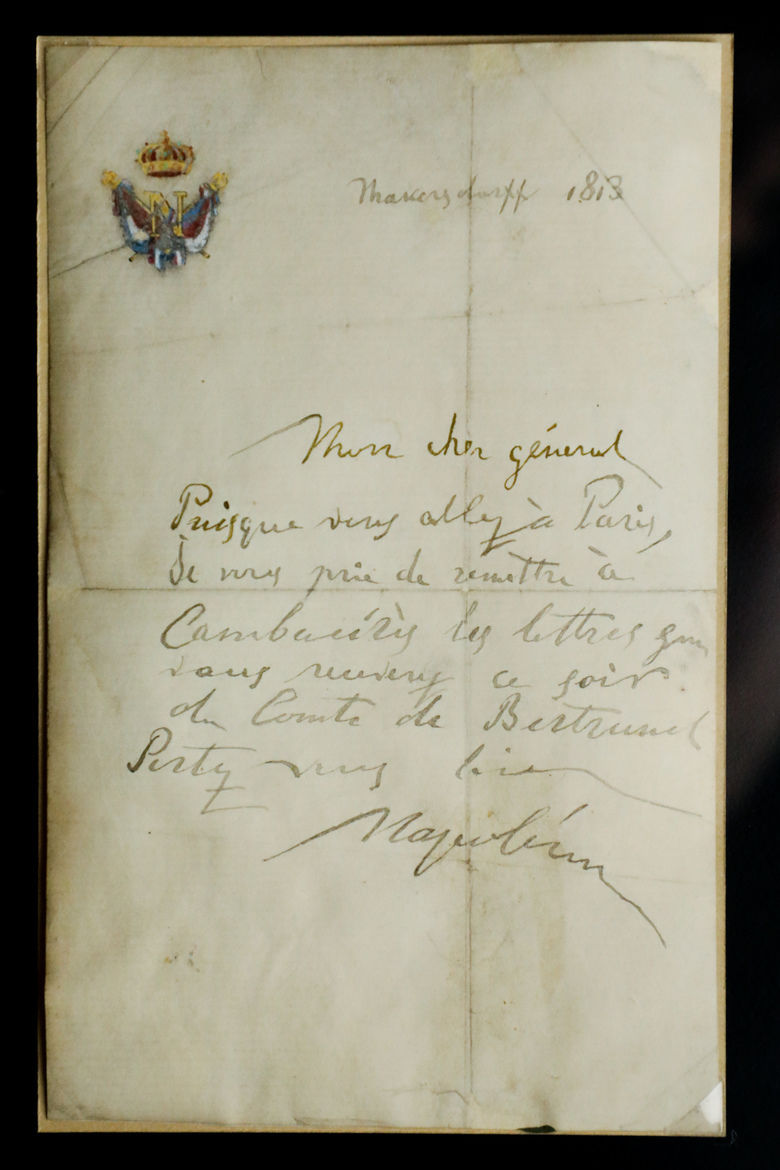 N
Makersdorff 1813
Mon cher général
Puisque vous allez à Paris,
Je vous prie de remettre à
Cambacérès les lettres que
vous recevez ce soir
du Comte de Bertrand
Portez vous bien
Napoléon